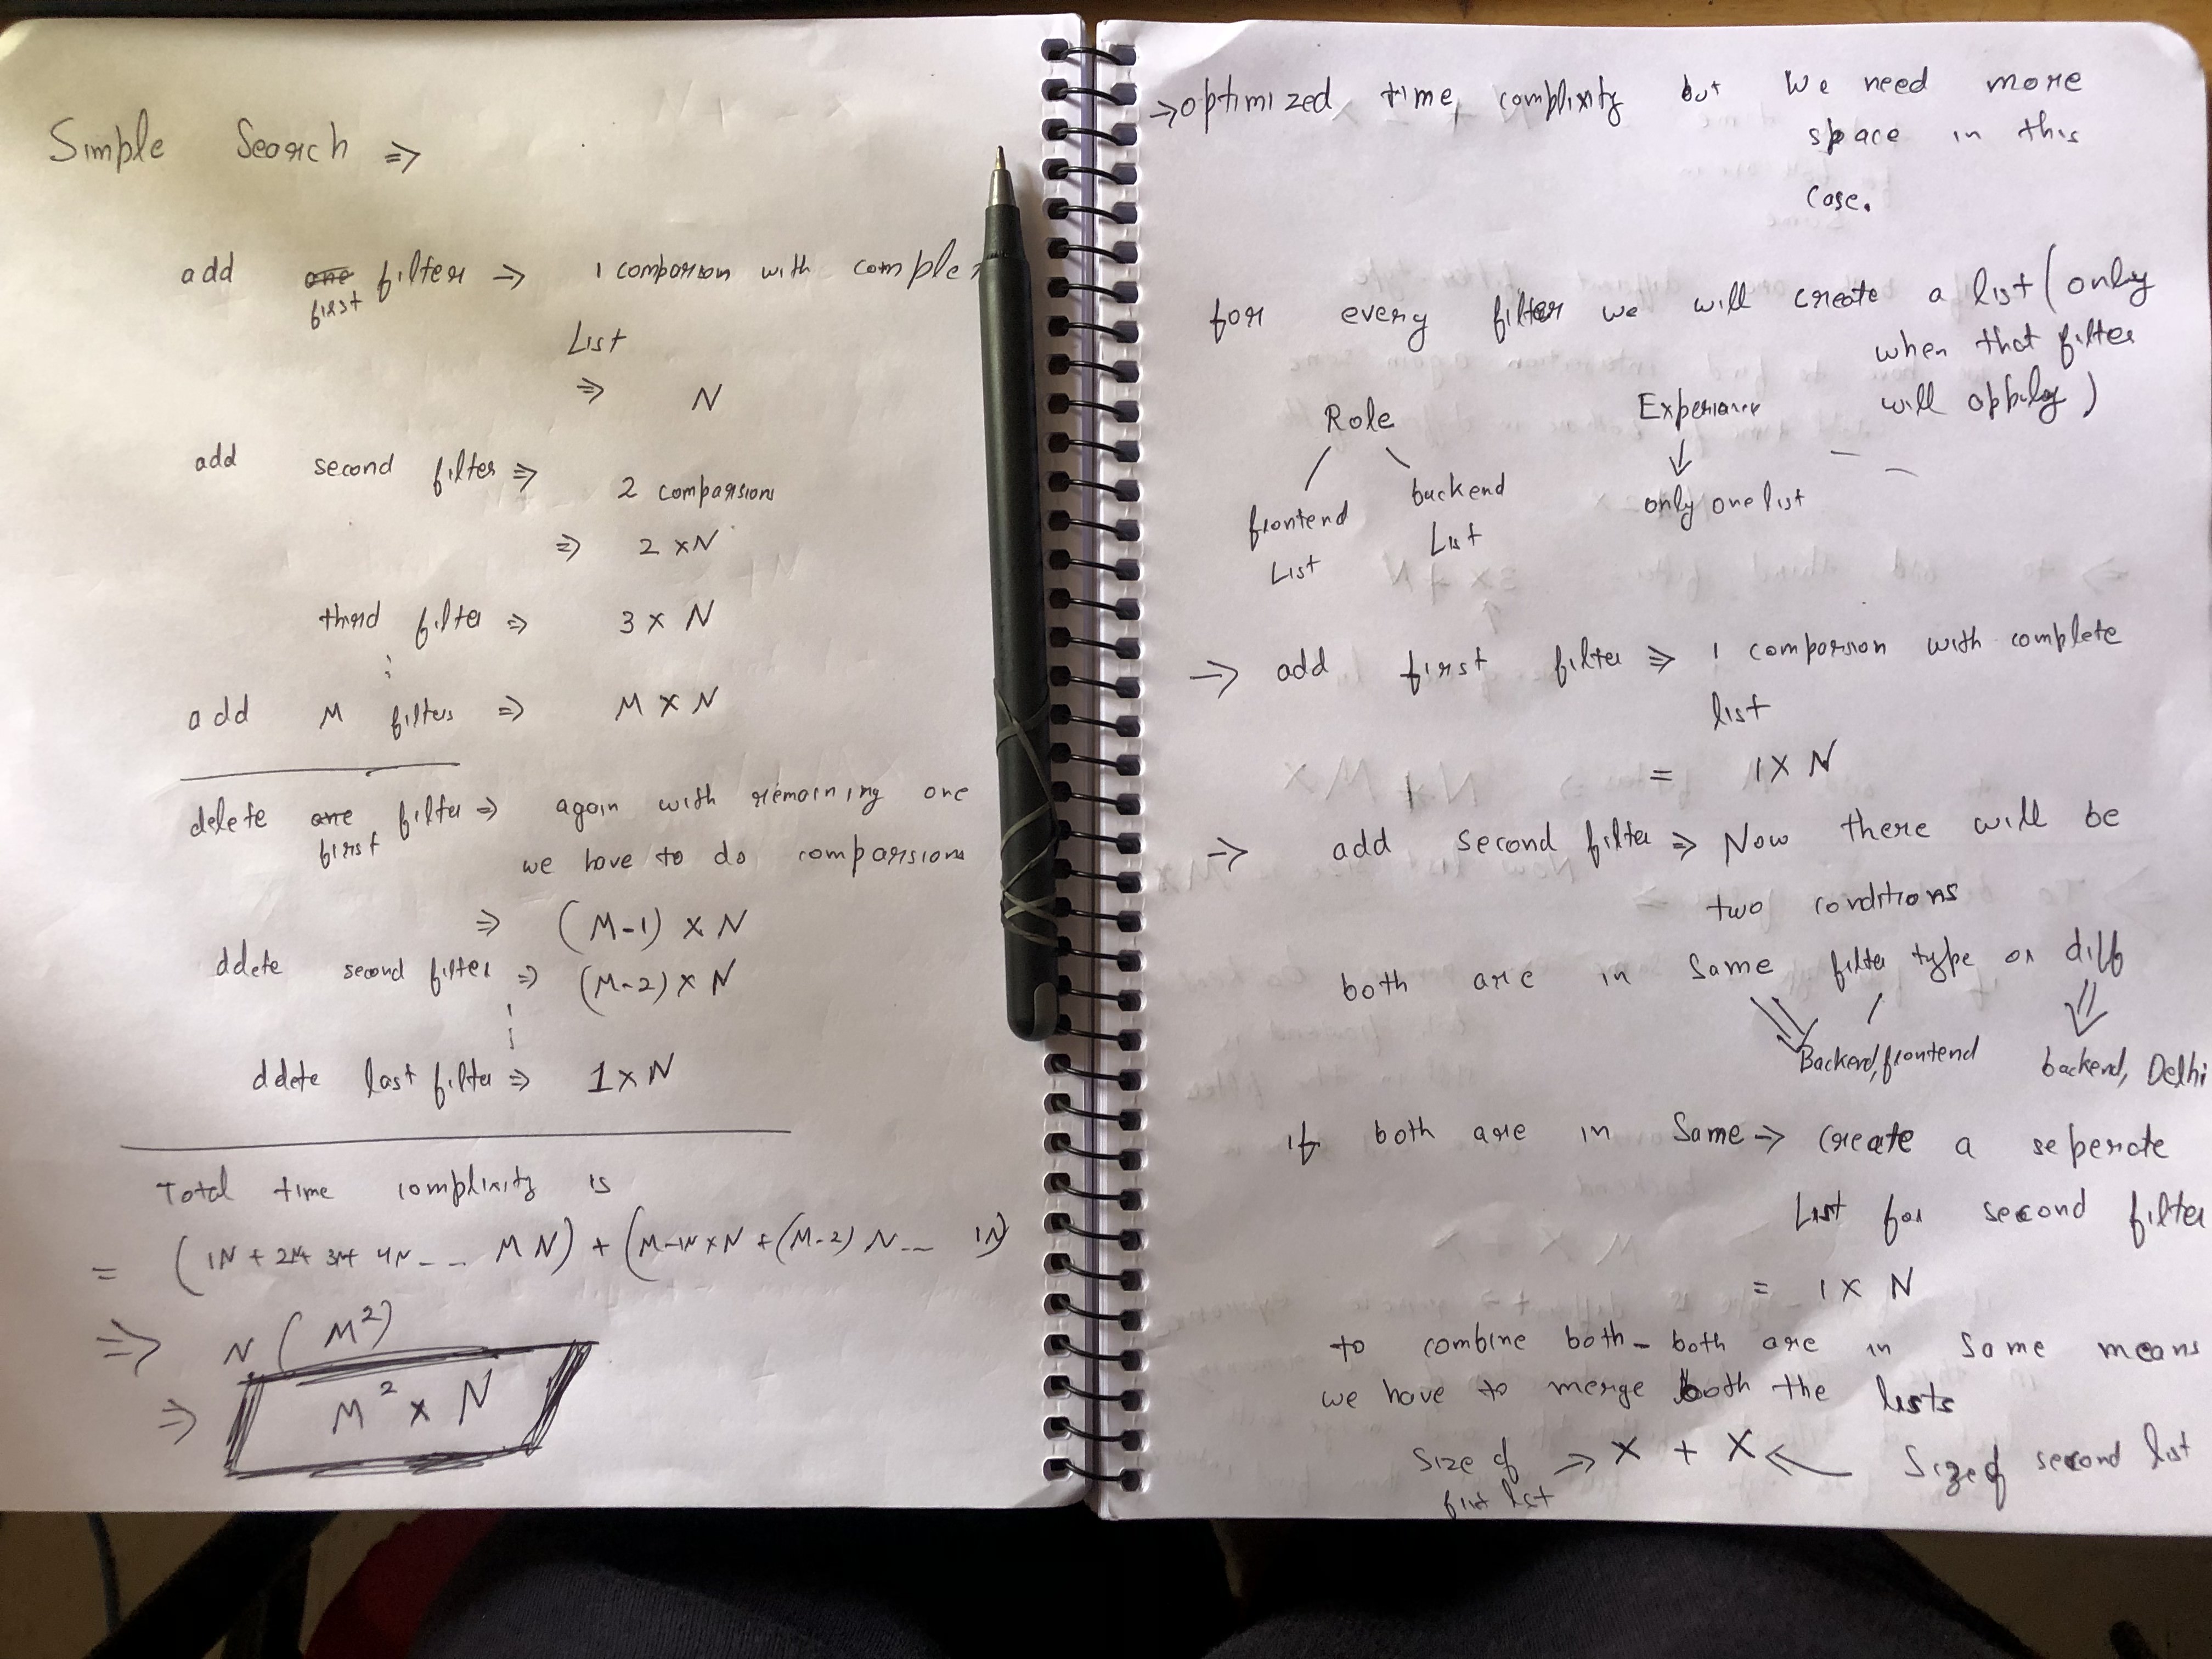 Simple Search ⇒
add first filter → 1 comparison with complete
List
⇒ N
add second filter ⇒ 2 comparsion
⇒ 2 × N
third filter ⇒ 3 × N
add M filters ⇒ M × N
delete first filter ⇒ again with remaining one
we have to do comparsion
⇒ (M-1) × N
ddete second filter ⇒ (M-2) × N
ddete last filter ⇒ 1 × N
Total time complixity is
= (1N + 2N+ 3N+ 4N - - - MN) + (M-1N×N + (M-2) N --- 1N)
⇒ N (M²)
⇒ M² × N
→ optimized time complixity but we need more
space in this
case.
for every filter we will create a list (only
when that filter
will apply)
Role Experiance
frontend List backend List only one list
→ add first filter ⇒ 1 comparison with complete
list
= 1 × N
→ add second filter ⇒ Now there will be
two conditions
both are in same filter type or diff
Backend/frontend backend, Delhi
if both are in same → create a seperate
List for second filter
= 1 × N
to combine both - both are in same means
we have to merge both the lists
size of first list → X + X ← Size of second list